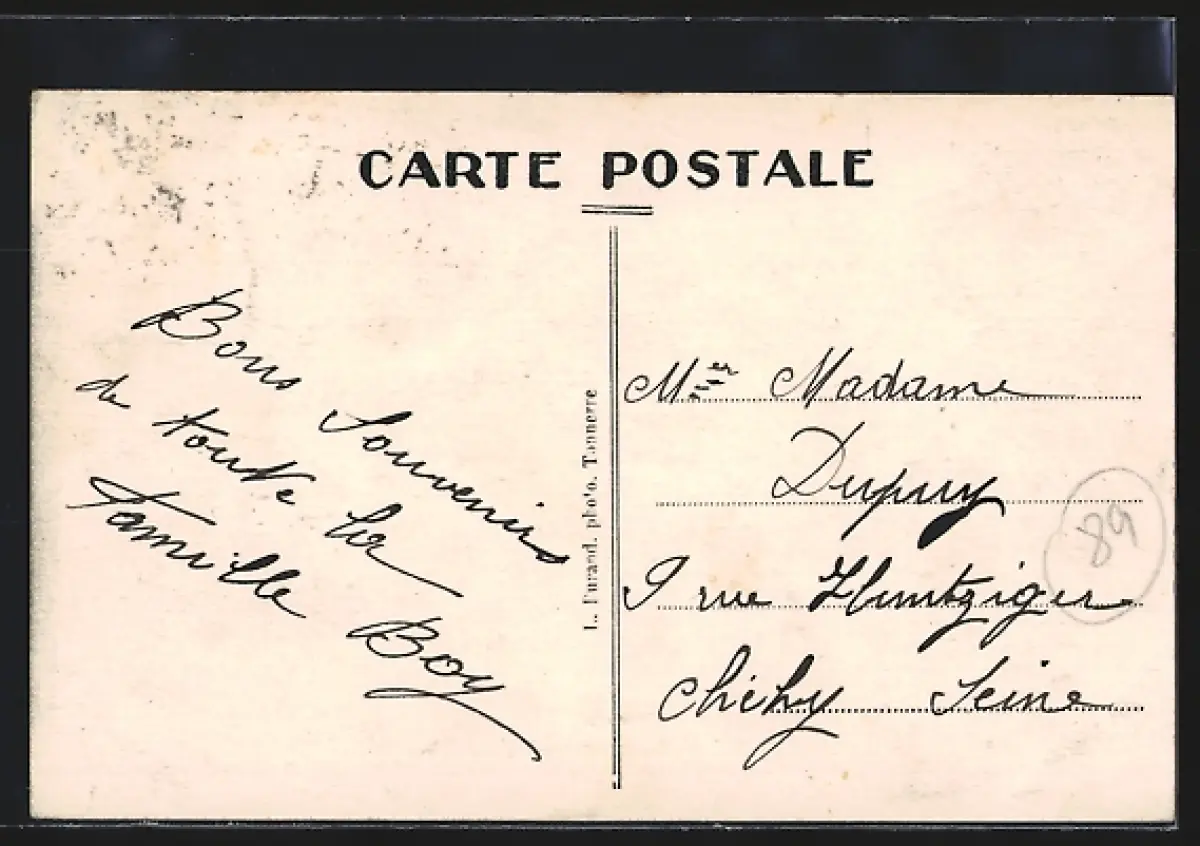 CARTE POSTALE
Bons Souvenirs
de toute la
famille Boy
L. Durand, photo. Tannerre
Mr Madame
Dupuy
9 rue Huntziger
Clichy Seine
89